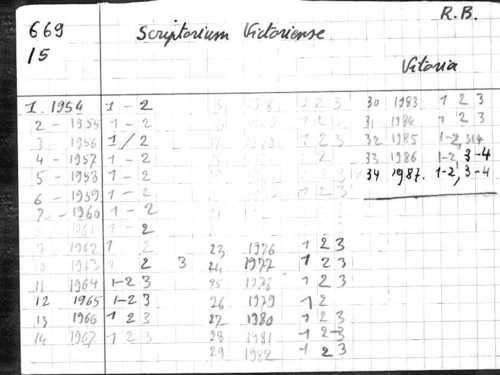 669 Scriptorium Victoriense R.B.
15 Vitoria
1. 1954 1 - 2 30 1983 1 2 3
2 - 1955 1 - 2 31 1984 1 2 3
3 1956 1/2 1 2 3 32 1985 1-2, 3-4
4 - 1957 1 - 2 2 33 1986 1-2, 3-4
5 - 1958 1 - 2 3 34 1987. 1-2, 3-4
6 - 1959 1 - 2 1 2 3
7 - 1960 1 - 2
1961 1 - 2
9 1962 1 2 23 1976 1 2 3
1963 2 3 24 1977 1 2 3
11 1964 1-2 3 25 1978 1 2 3
12 1965 1-2 3 26 1979 1 2
13 1966 1 2 3 27 1980 1 2 3
14 1967 1 2 3 28 1981 1 2 3
29 1982 1 2 3